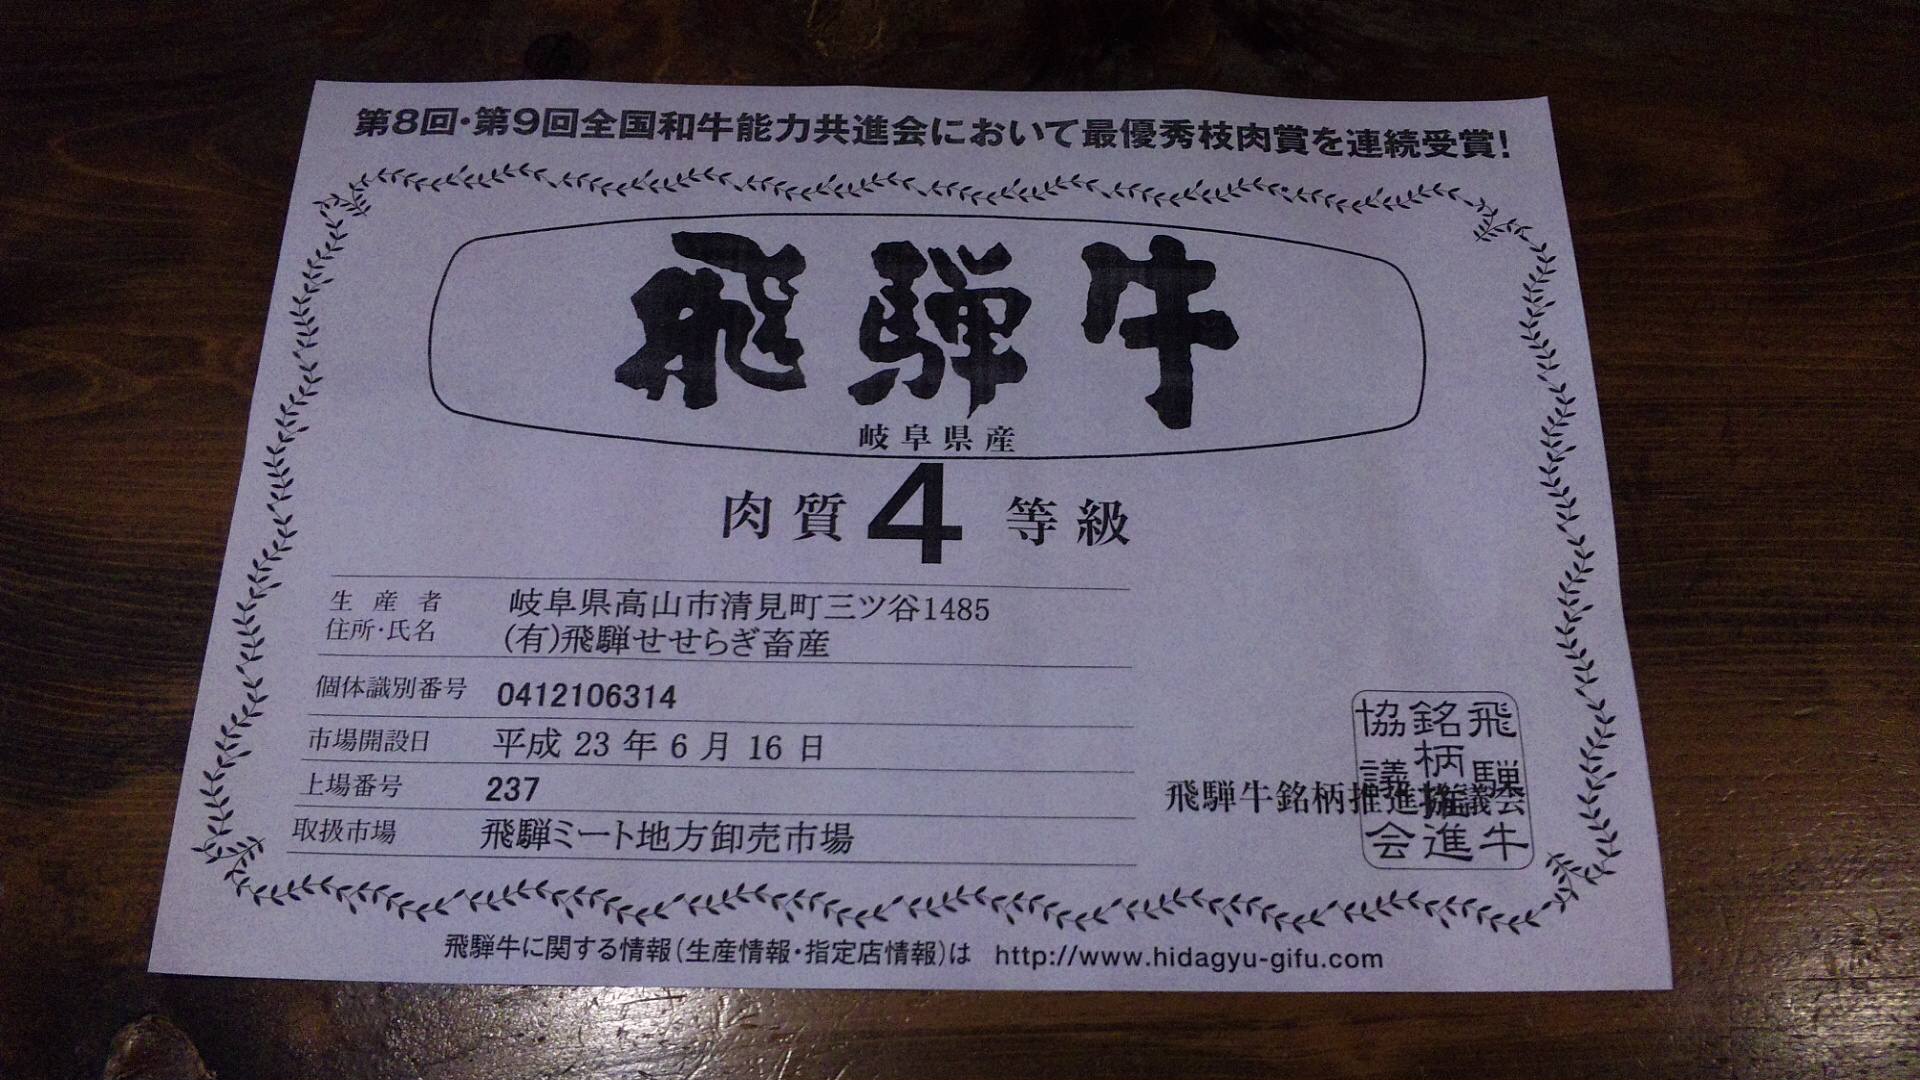 第8回・第9回全国和牛能力共進会において最優秀枝肉賞を連続受賞！
飛騨牛
岐阜県産
肉質4等級
生産者 岐阜県高山市清見町三ツ谷1485
住所・氏名 (有)飛騨せせらぎ畜産
個体識別番号 0412106314
市場開設日 平成 23 年 6 月 16 日
上場番号 237
取扱市場 飛騨ミート地方卸売市場
飛騨牛銘柄推進協議会
飛騨牛
銘柄推進
協議会
飛騨牛に関する情報(生産情報・指定店情報)は http://www.hidagyu-gifu.com